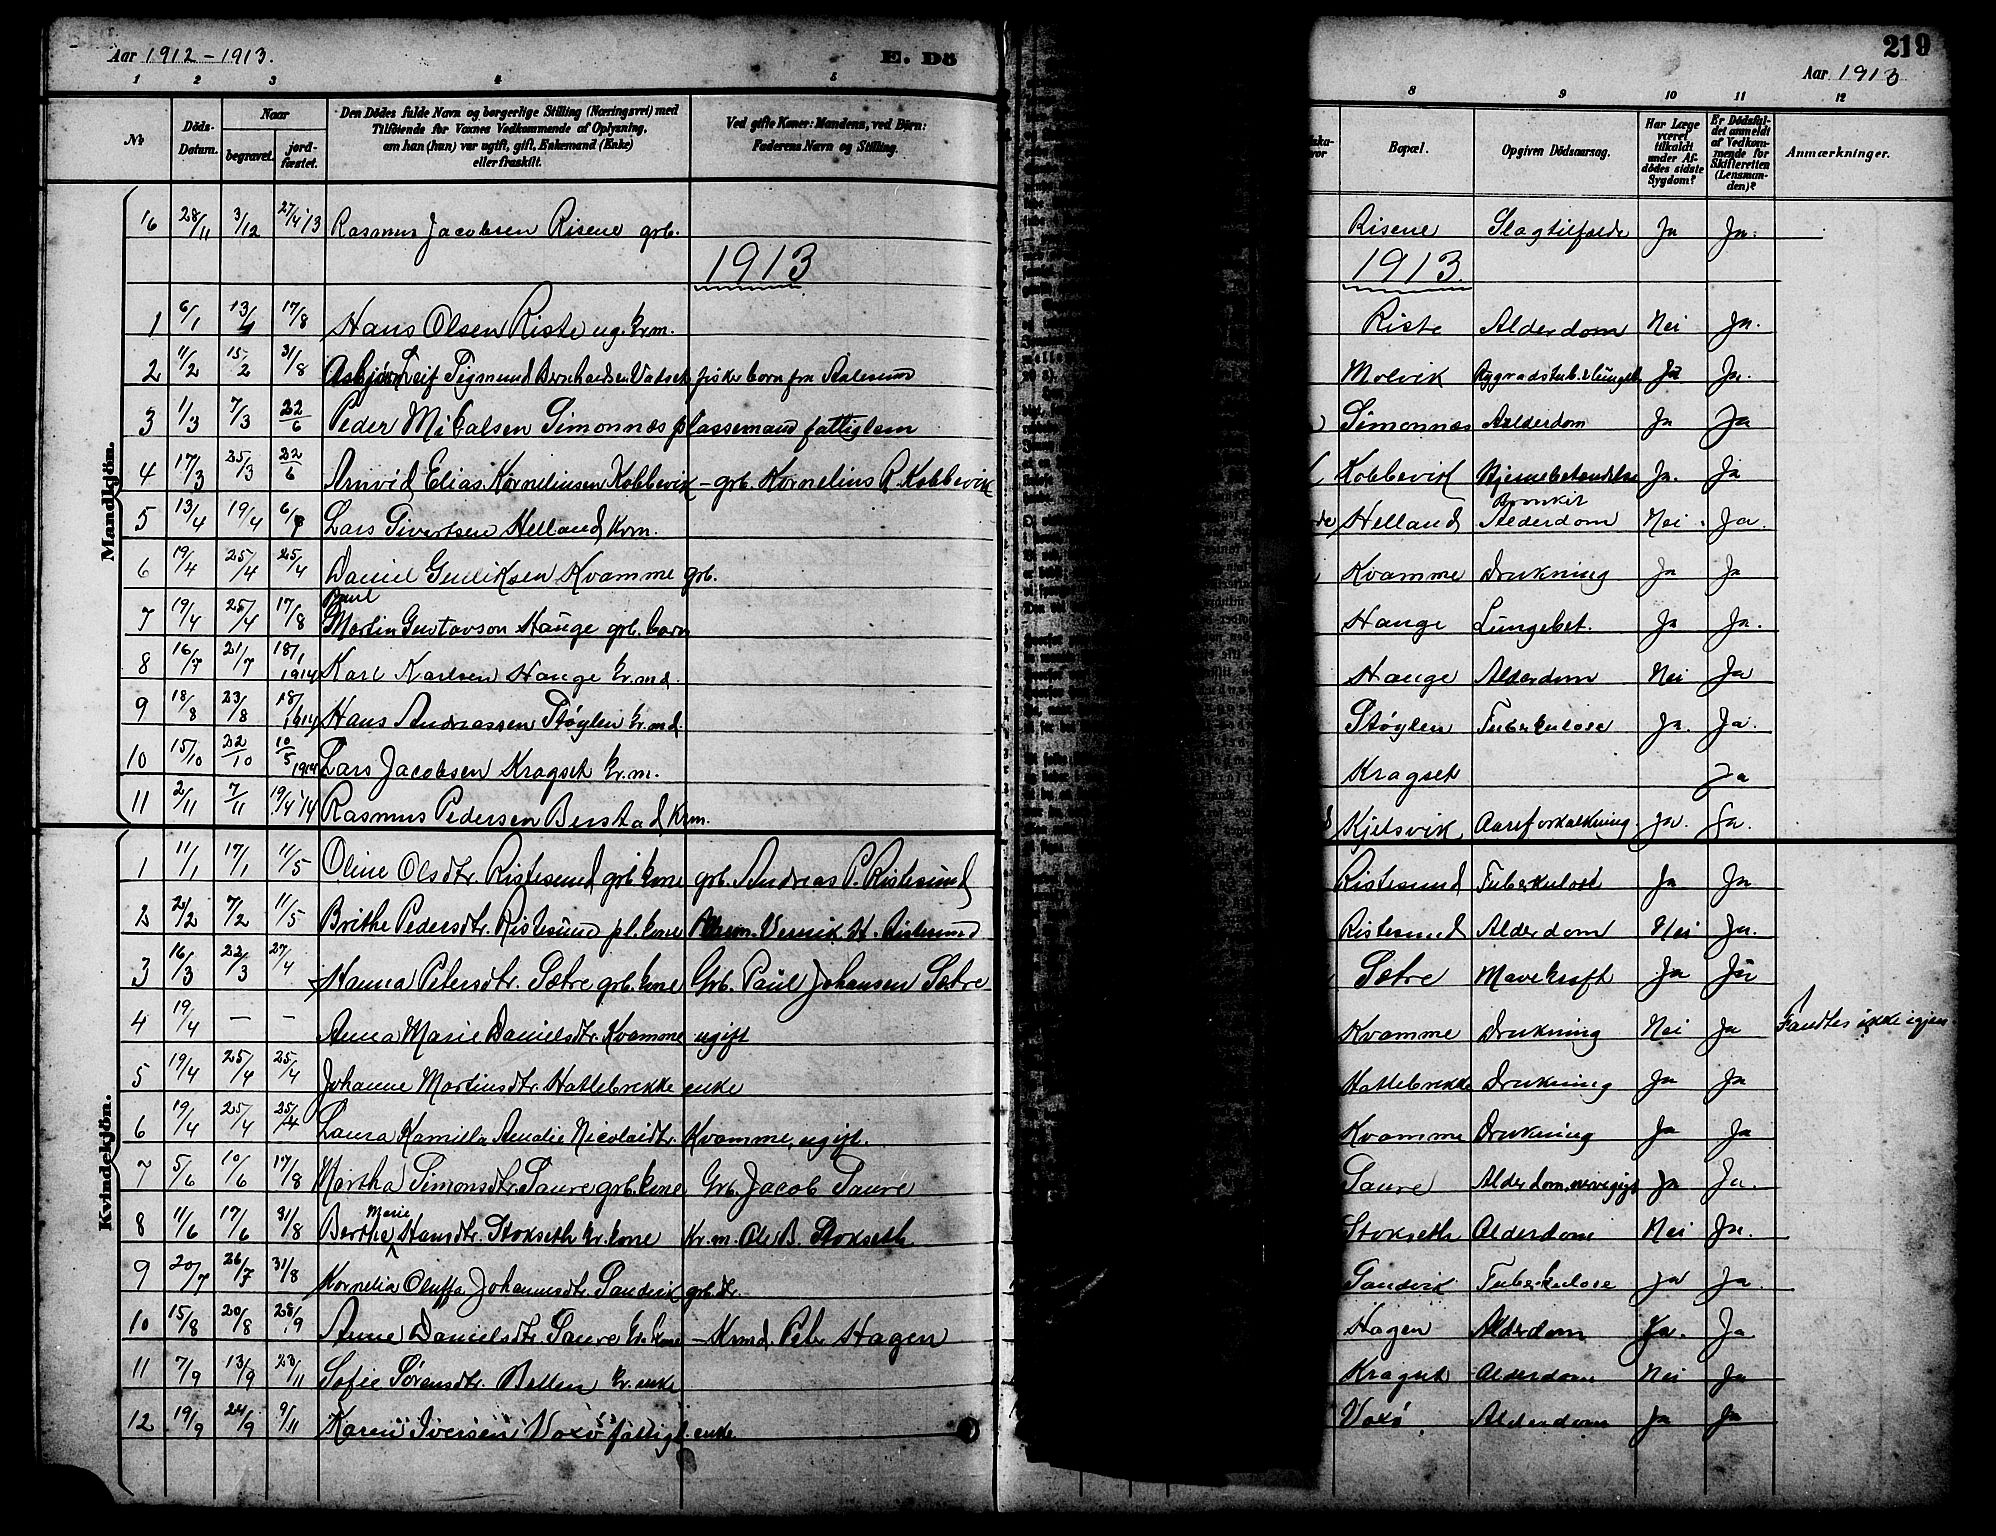 Aar 1912-1913.
E. Dö
1 2 3 4 5
№
Döds-Datum.
Naar
begravet.
jord-fæstet.
Den Dödes fulde Navn og borgerlige Stilling (Næringsvei) med
Tilföiende for Voxnes Vedkommende af Oplysning,
om han (hun) var ugift, gift, Enkemand (Enke)
eller fraskilt.
Ved gifte Koner: Mandens, ved Börn:
Faderens Navn og Stilling.
Mandkjön.
16 28/11 3/12 27/4 13 Rasmus Jacobsen Risene grb.
1913
1 6/1 17/8 Hans Olsen Riste ug. krm.
2 11/2 15/2 31/8 Asbjørn Leif Sigmund Bernhardsen Vatset fisker barn fra Aalesund
3 1/3 7/3 22/6 Peder Mikalsen Simonnæs plassemand fattiglem
4 17/3 25/3 22/6 Arnvid Elias Korneliusen Kobbevik - grb. Kornelius R. Kobbevik
5 13/4 19/4 Lars Sivertsen Helland Krm.
6 19/4 25/4 25/4 Daniel Gulliksen Kvamme grb.
Paul
7 19/4 25/4 17/8 Martin Gustavson Hauge grb. barn
8 16/7 21/7 18/1 1914 Karl Karlsen Hauge kr.md.
9 18/8 23/8 18/1 1914 Hans Andreassen Støylen kr.md.
10 15/10 22/10 10/5 1914 Lars Jacobsen Kragset kr.m.
11 2/11 7/11 19/4 14 Rasmus Pedersen Berstad Krm.
Kvindekjön.
1 11/1 17/1 11/5 Oline Olsdtr. Ristesund grb. kone grb. Andreas P. Ristesund
2 2/2 7/2 11/5 Brithe Pedersdtr. Ristesund pl. kone H. Ristesund
3 16/3 22/3 27/4 Hanna Petersdtr. Sætre grb. kone Grb. Paul Johansen Sætre
4 19/4 — — Anna Marie Danielsdtr. Kvamme ugift
5 19/4 25/4 25/4 Johanne Martinsdtr. Hatlebrekke enke
6 19/4 25/4 25/4 Laura Kamilla Amalie Nicolaidtr. Kvamme, ugift.
7 5/6 10/6 17/8 Martha Simonsdtr. Saure grb. kone Grb. Jacob Saure
Marie
8 11/6 17/6 31/8 Berthe Hansdtr. Stokseth kr. kone Kr.m. Ole B. Stokseth
9 20/7 26/7 31/8 Kornelia Oluffa Johannesdtr. Sandvik grb. dr.
10 15/8 20/8 28/9 Anne Danielsdtr. Saure kr. kone - Krmd. Peter Hagen
11 7/9 13/9 23/11 Sofie Sørensdtr. Betten kr. enke
12 19/9 24/9 9/11 Karen Iversen Voxø fattigl. enke
219
Aar 1913
8 9 10 11 12
Bopæl.
Opgiven Dödsaarsag.
Har Læge
været
tilkaldt
under Af-
dödes sidste
Sygdom?
Er Dödsfal-
det anmeldt
af Vedkom-
mende for
Skifteretten
(Lensman-
den)?
Anmærkninger.
Risene Slagtilfælde Ja Ja.
1913.
Riste Alderdom Nei Ja.
Molvik Ja Ja.
Simonnæs Alderdom Ja Ja
Kobbevik Hjernebetændelse Ja. Ja
Bronkit
Helland Alderdom Nei. Ja.
Kvamme Drukning Ja Ja
Hauge Lungebet. Ja Ja.
Hauge Alderdom Nei Ja
Støylen Tuberkulose Ja. Ja.
Kragset Ja
Kjelsvik Aareforkalkning. Ja. Ja.
Ristesund Tuberkulose Ja Ja
Ristesund Alderdom Nei Ja.
Sætre Mavekræft Ja Ja
Kvamme Drukning Nei Ja Fandtes ikke igjen
Hatlebrekke Drukning Ja Ja
Kvamme Drukning Ja Ja
Saure Alderdom, nervegigt Ja Ja.
Stokseth Alderdom Nei Ja.
Sandvik Tuberkulose Ja Ja.
Hagen Alderdom Ja. Ja
Kragset Alderdom Nei Ja
Voxø Alderdom Ja Ja